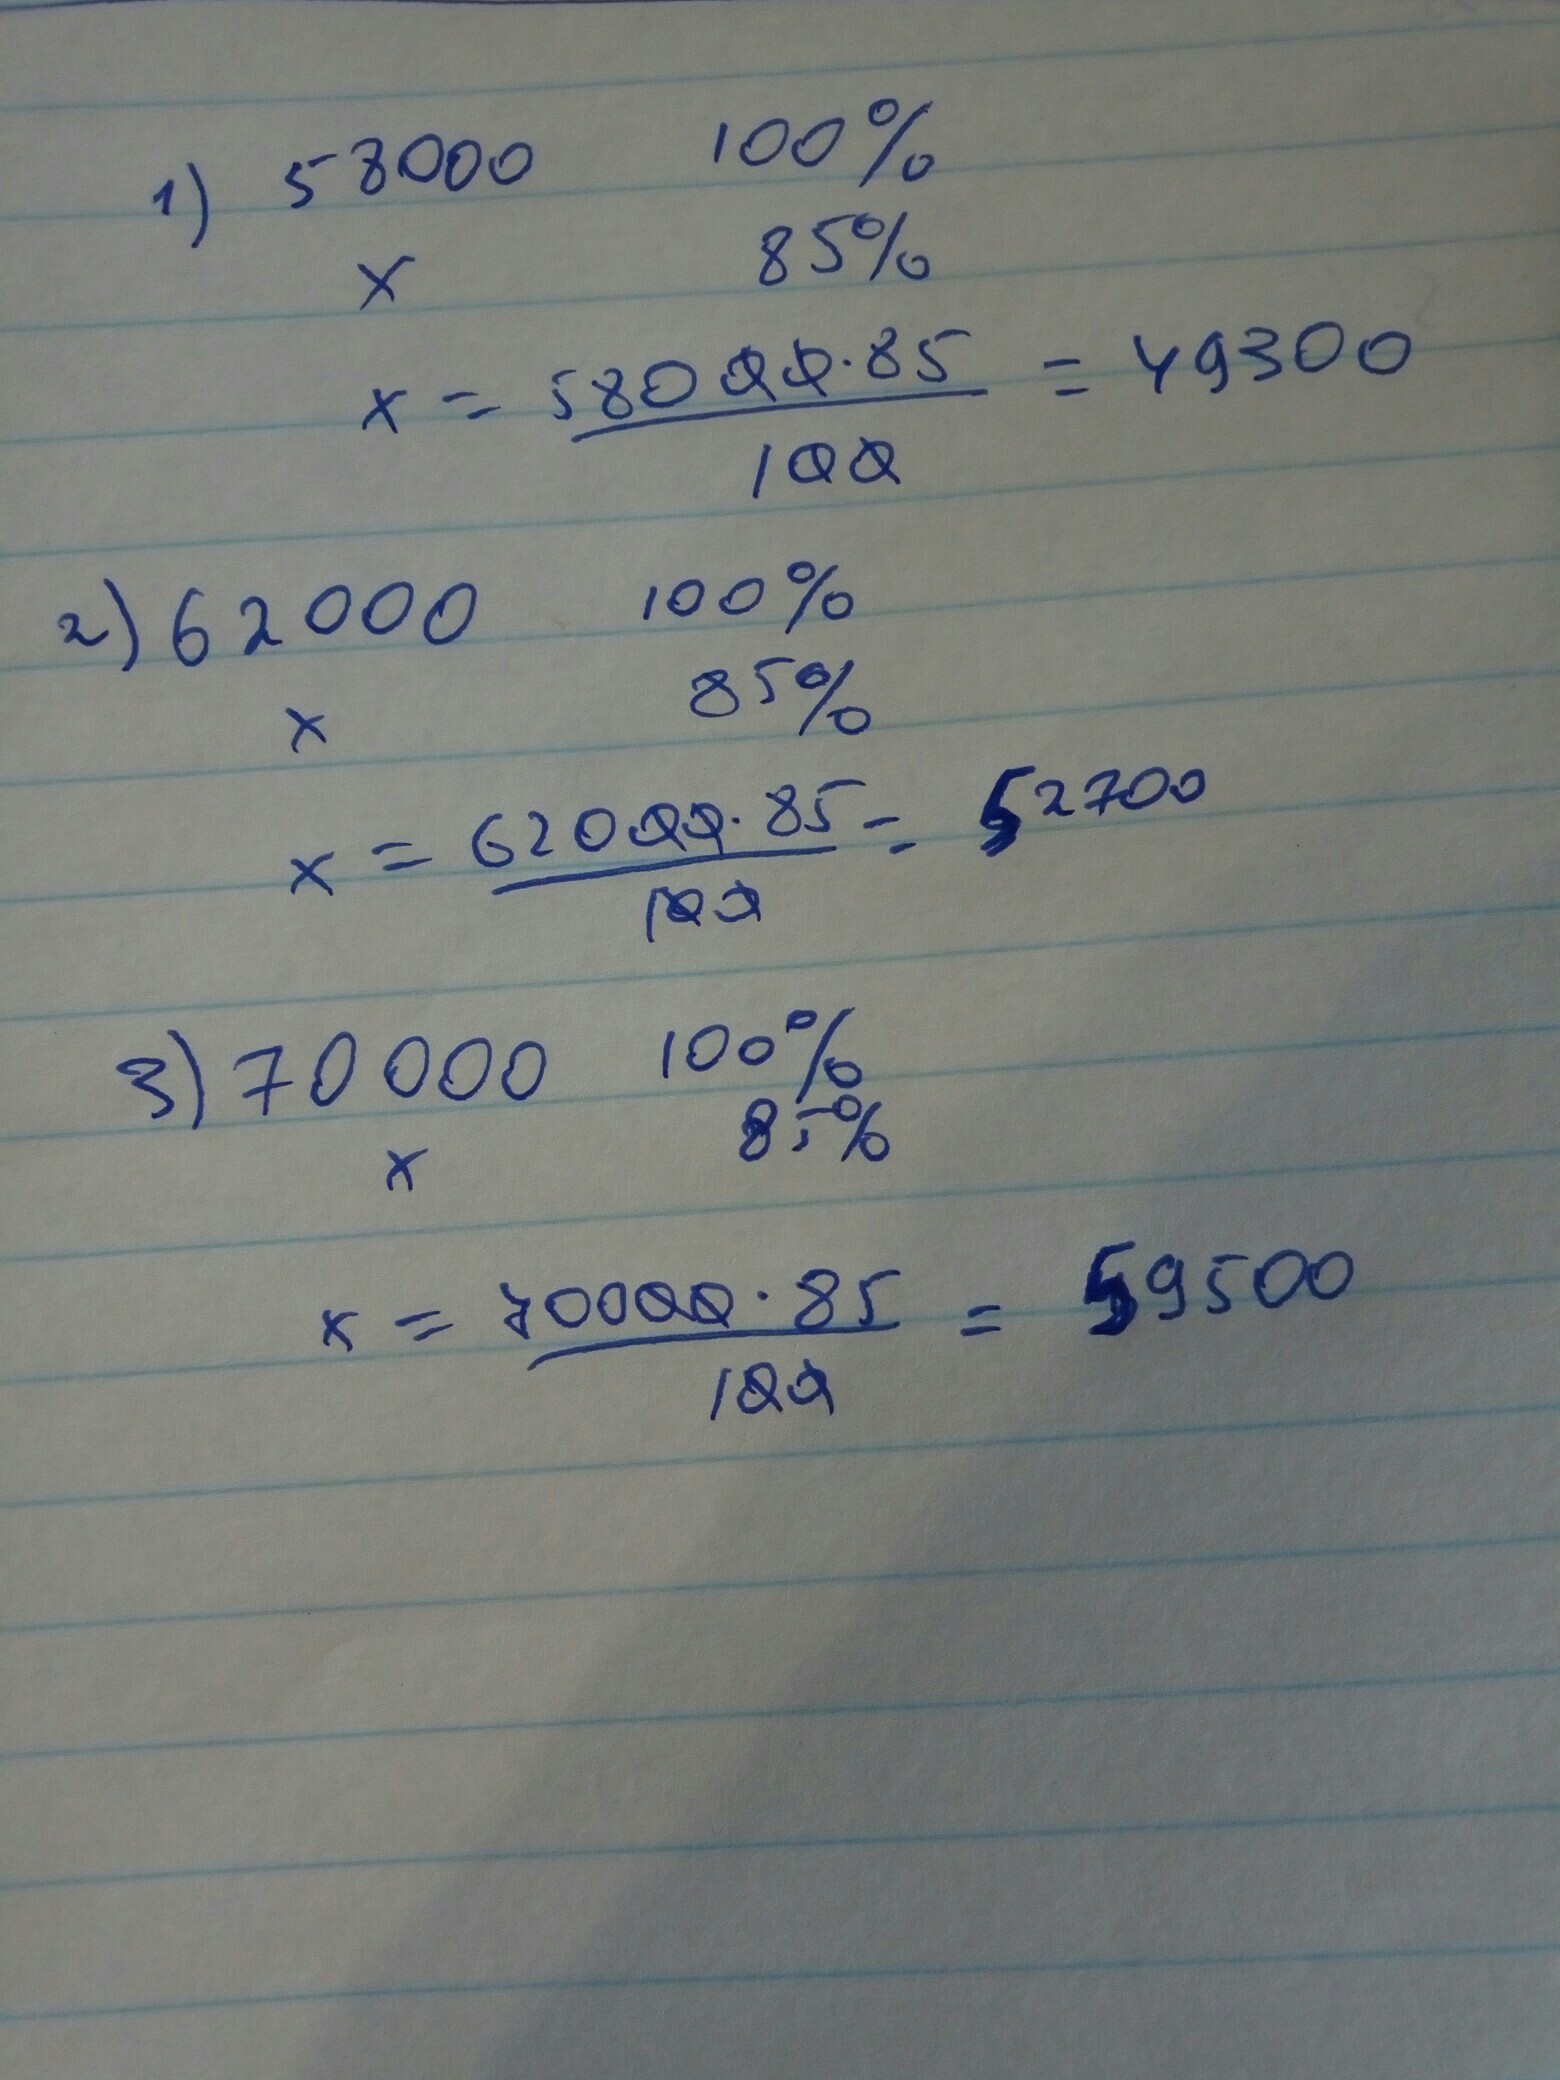 1) 58000 100%
x 85%
x = 58000·85 = 49300
100
2) 62000 100%
x 85%
x = 62000·85 = 52700
100
3) 70000 100%
x 85%
x = 70000·85 = 59500
100